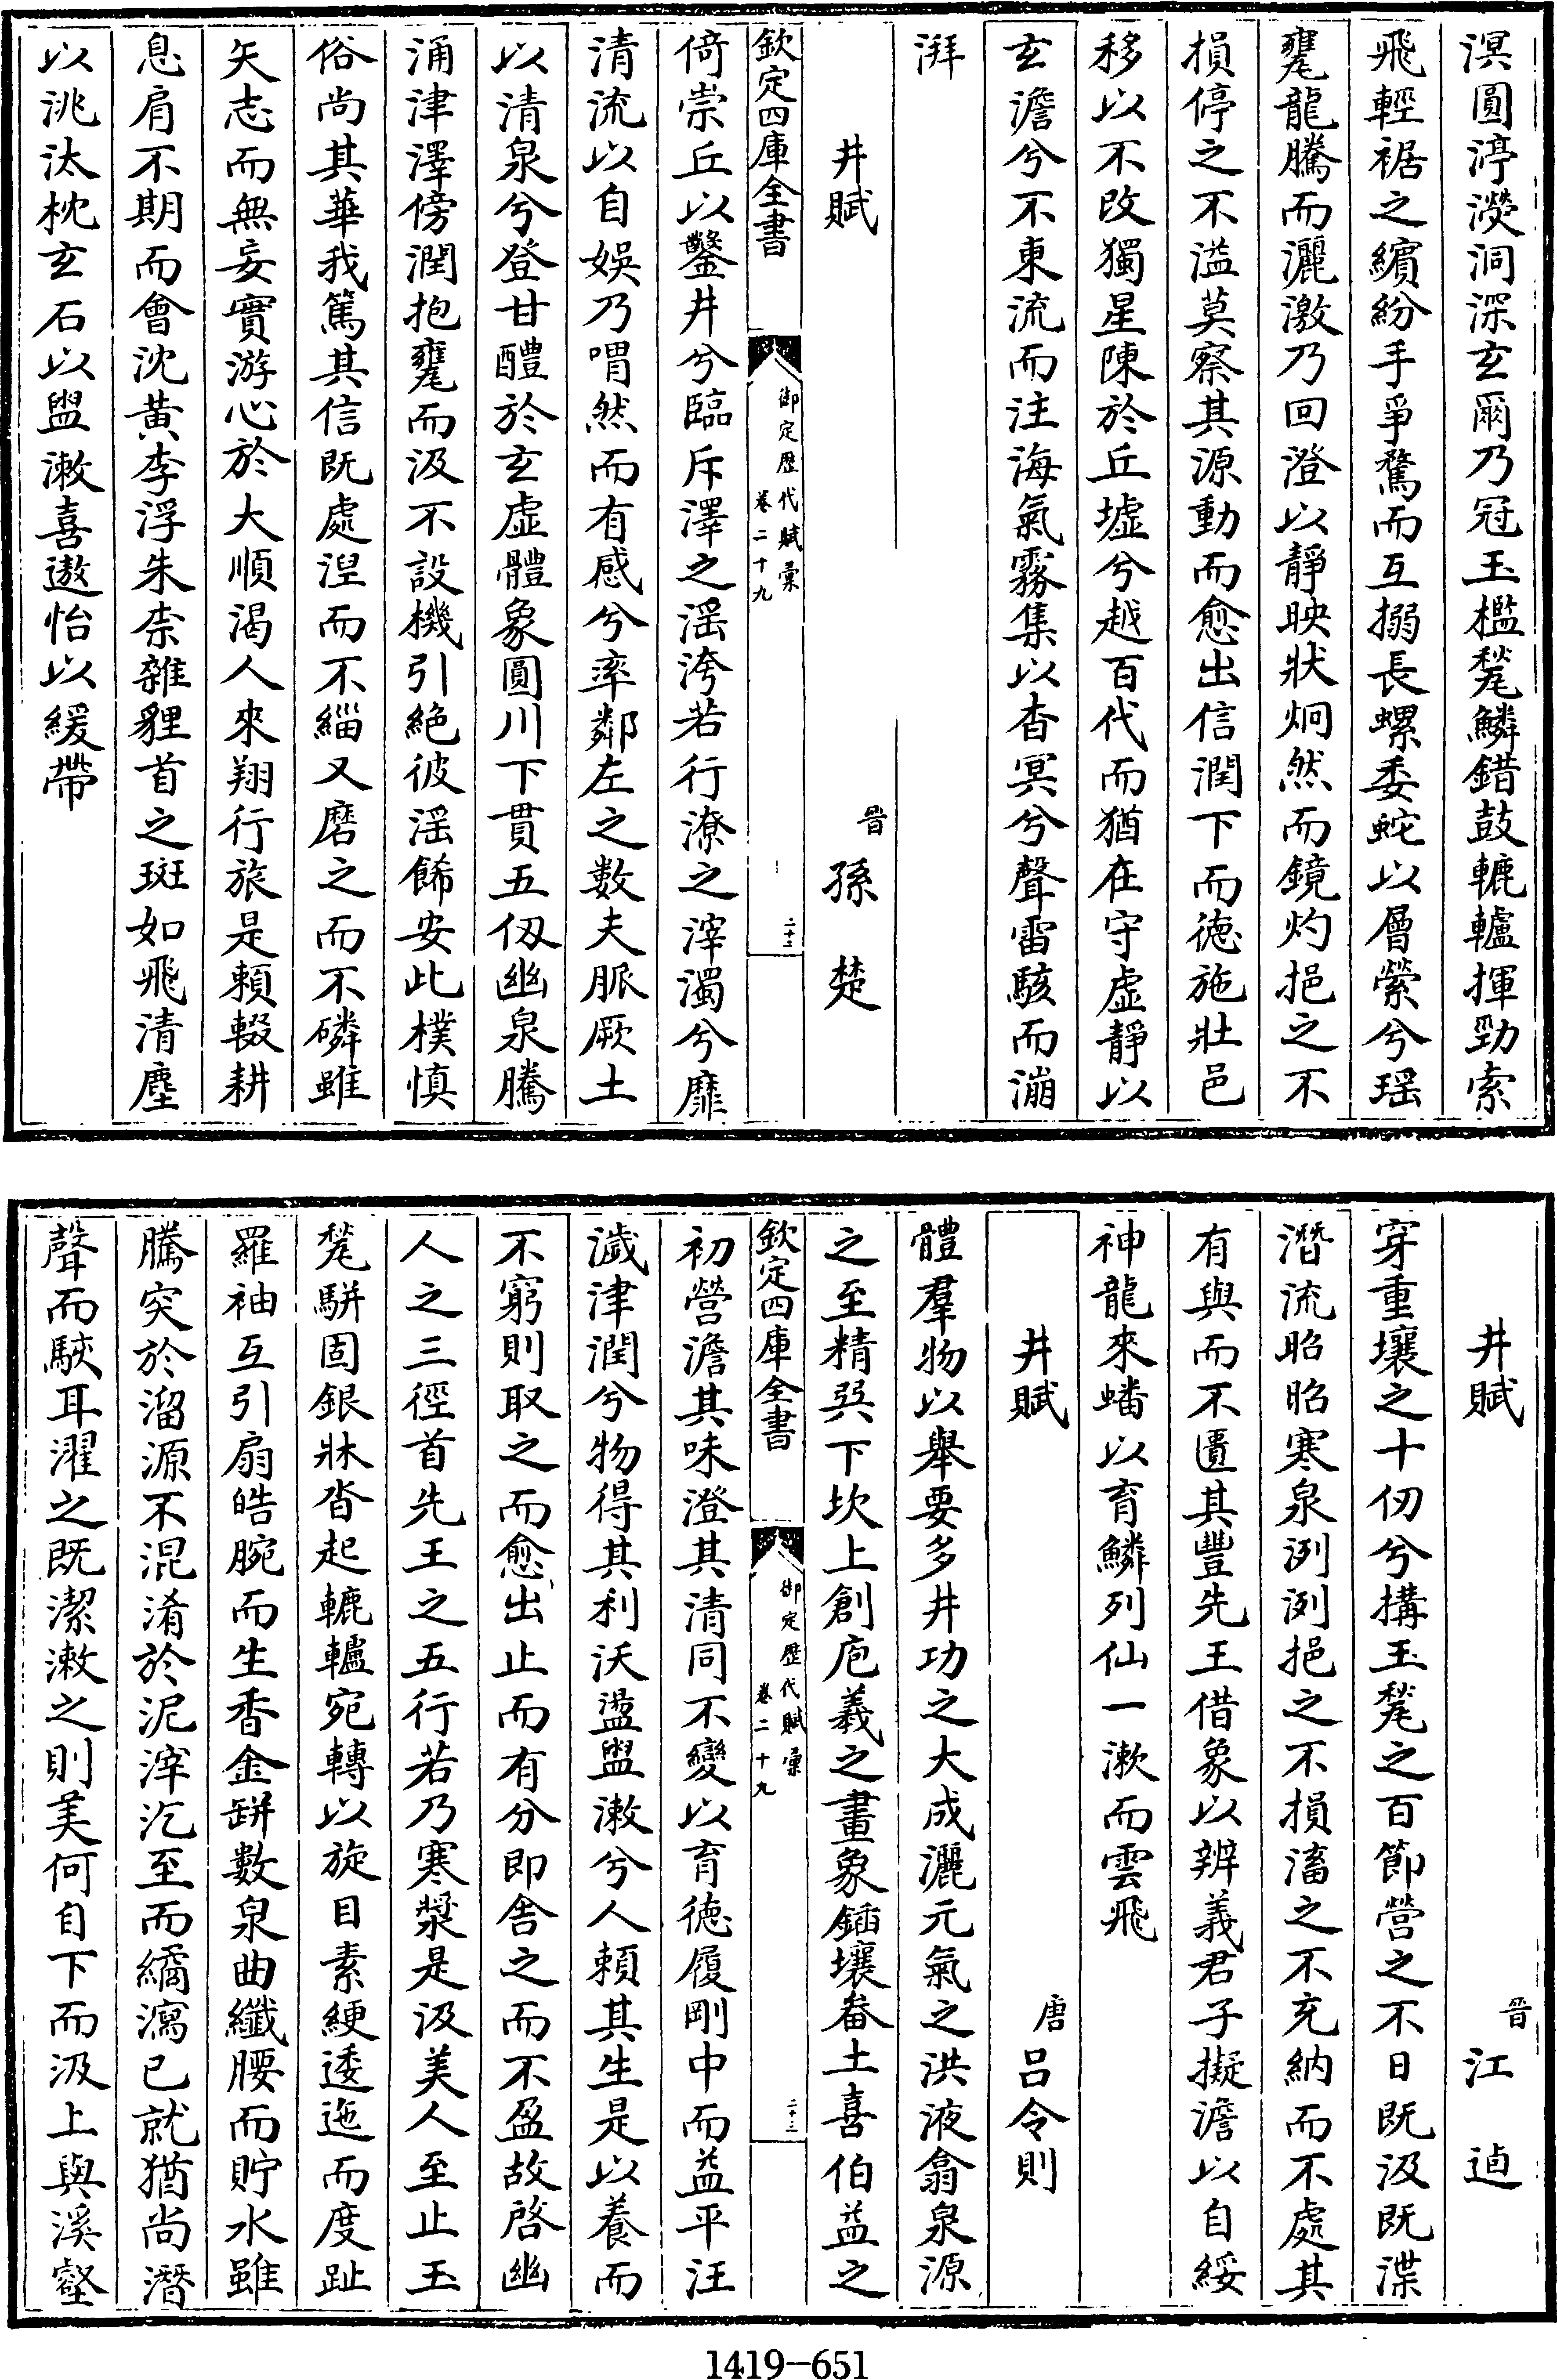 溟圓渟濙洞深玄爾乃冠玉檻甃鱗錯鼓轆轤揮勁索
飛輕裾之繽紛手爭騖而互搦長螺委蛇以層縈兮瑶
甕龍騰而灑激乃回澄以靜映狀炯然而鏡灼挹之不
損停之不溢莫察其源動而愈出信潤下而徳施壯邑
移以不改獨星陳於丘墟兮越百代而猶在守虚靜以
玄澹兮不東流而注海氣霧集以杳冥兮聲雷駭而㴙
湃
井賦 晉 孫楚
欽定四庫全書 御定歴代賦彙 卷二十九 二十二
倚崇丘以鑿井兮臨斥澤之滛洿若行潦之滓濁兮靡
清流以自娛乃喟然而有感兮率鄰左之數夫脈厥土
以清泉兮登甘醴於玄虚體象圓川下貫五仭幽泉騰
涌津澤傍潤抱甕而汲不設機引絶彼滛餙安此樸慎
俗尚其華我篤其信既處涅而不緇又磨之而不磷雖
矢志而無妄實游心於大順渴人來翔行旅是頼輟耕
息肩不期而會沈黄李浮朱柰雜貍首之斑如飛清塵
以洮汰枕玄石以盥漱喜遨怡以緩帶
井賦 晉 江逌
穿重壤之十仞兮搆玉甃之百節營之不日既汲既渫
潛流昭昭寒泉洌洌挹之不損滀之不充納而不處其
有與而不匱其豐先王借象以辨義君子擬澹以自綏
神龍來蟠以育鱗列仙一漱而雲飛
井賦 唐 吕令則
體羣物以舉要多井功之大成灑元氣之洪液翕泉源
之至精巽下坎上創庖義之畫象鍤壤畚土喜伯益之
初營澹其味澄其清同不變以育徳履剛中而益平汪
濊津潤兮物得其利沃盪盥漱兮人頼其生是以養而
不窮則取之而愈出止而有分即舎之而不盈故啓幽
人之三徑首先王之五行若乃寒漿是汲美人至止玉
甃駢固銀牀沓起轆轤宛轉以旋目素綆逶迤而度趾
羅袖互引扇皓腕而生香金缾數泉曲纖腰而貯水雖
騰突於溜源不混淆於泥滓汔至而繘瀉已就猶尚潛
聲而駛耳濯之既潔漱之則美何自下而汲上與溪壑
欽定四庫全書 御定歴代賦彙 卷二十九 二十三
1419-651